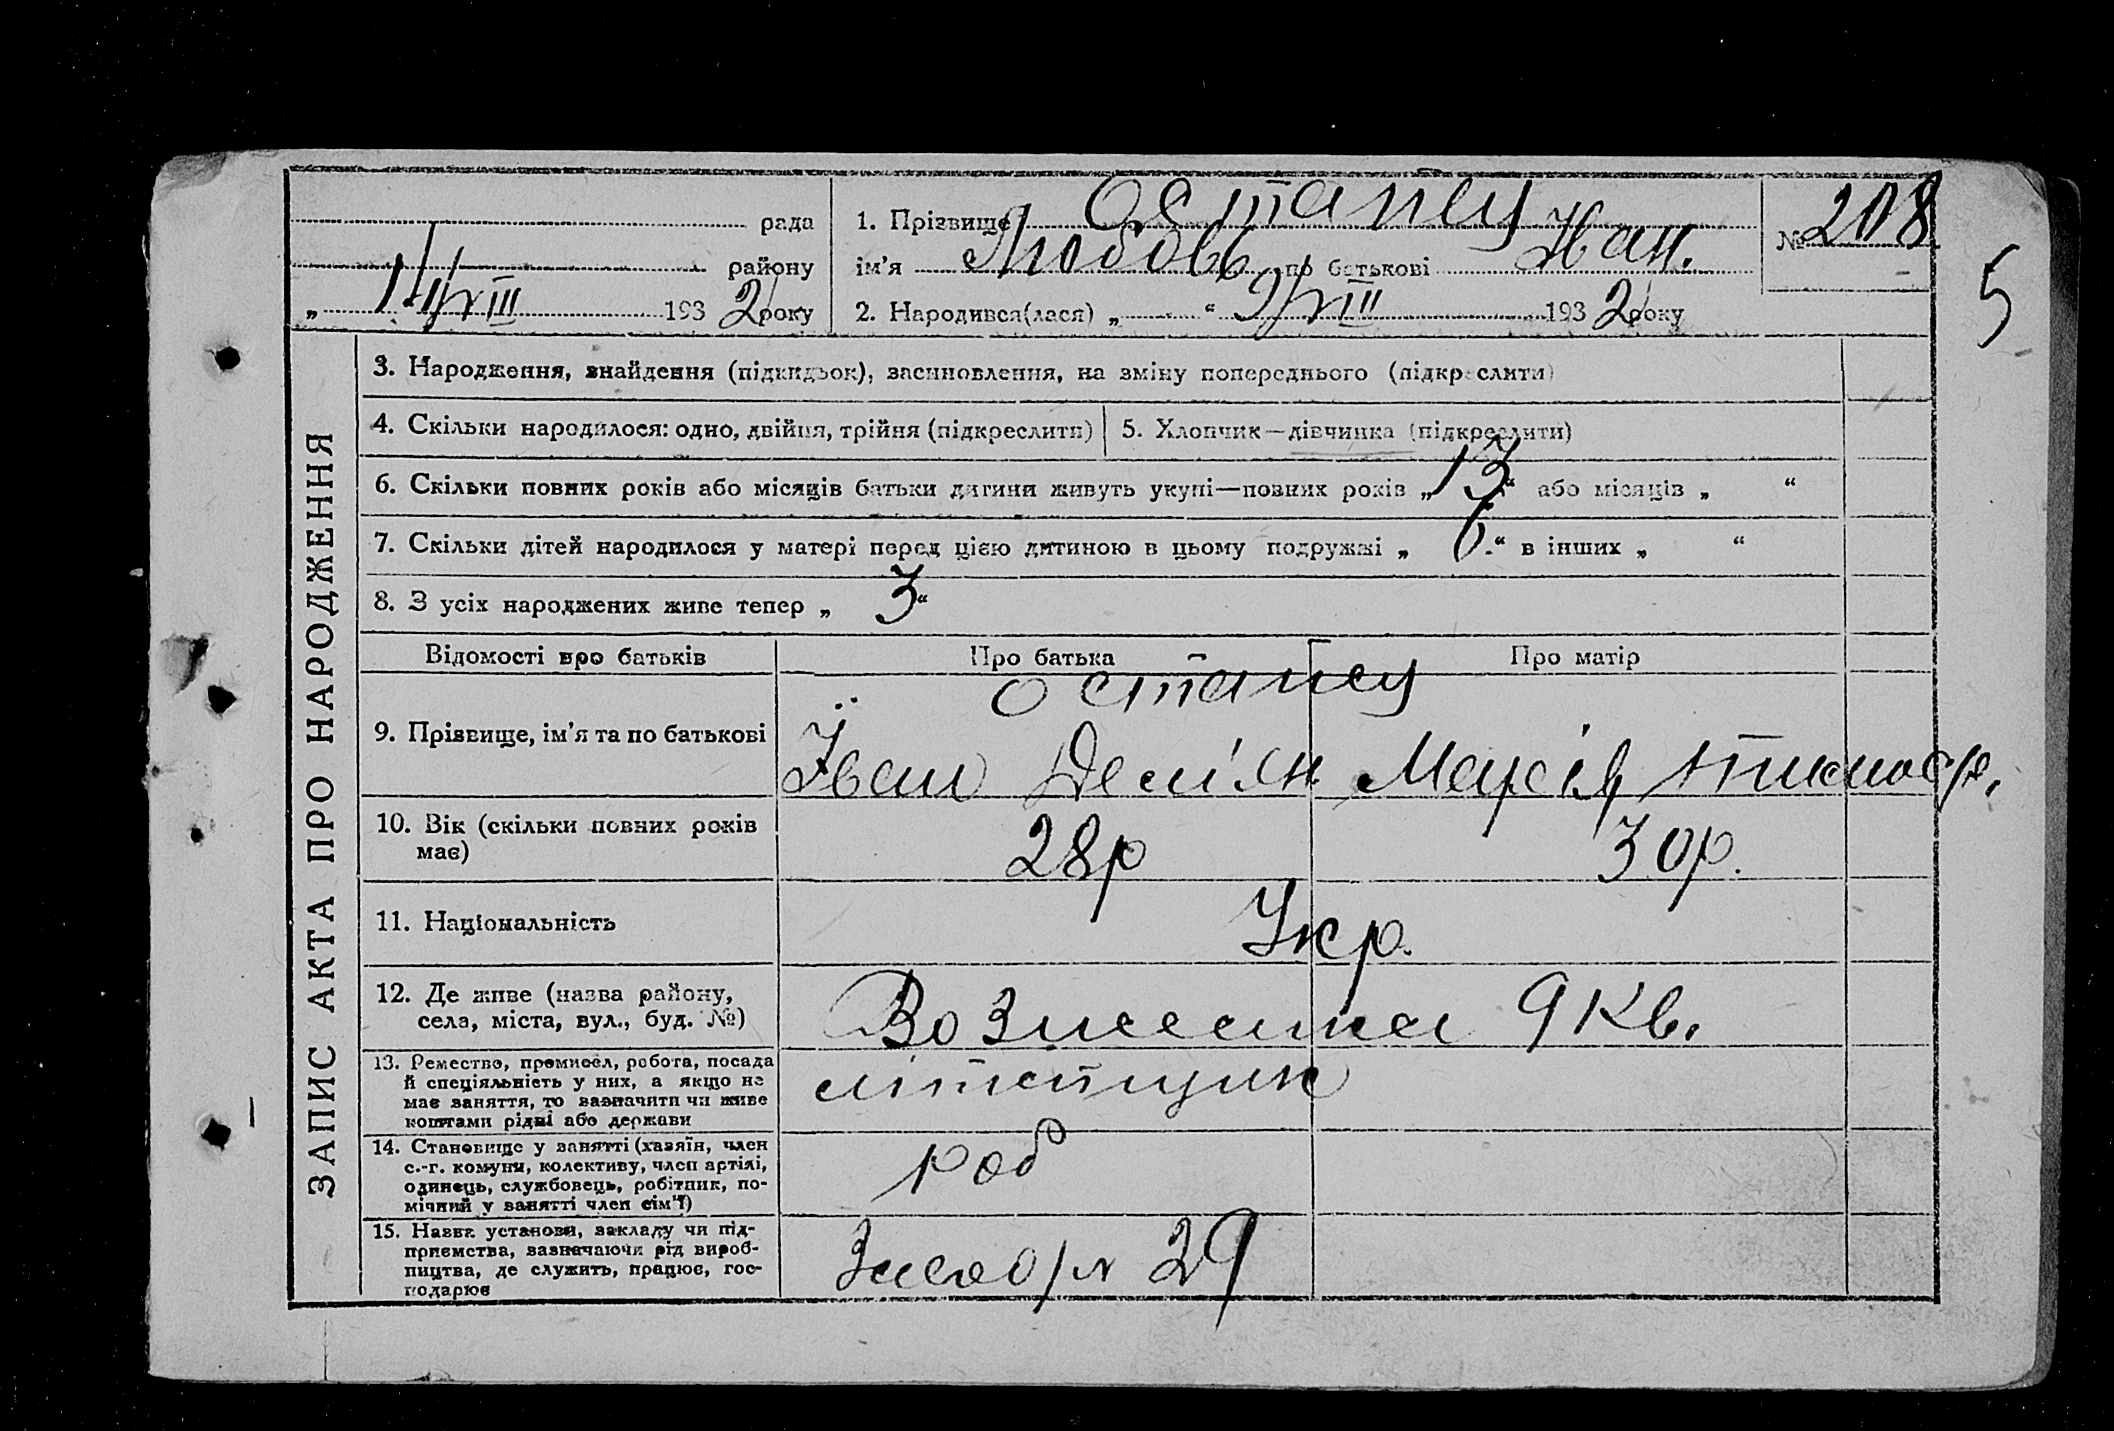 рада
1. Прізвище Остапец
№ 208
району
ім'я Любовь по батькові Іван.
5
„ 14/VIII 1932 року
2. Народився(лася) „ “ 9/VIII 1932 року
ЗАПИС АКТА ПРО НАРОДЖЕННЯ
3. Народження, знайдення (підкидьок), засиновлення, на зміну попереднього (підкреслити)
4. Скільки народилося: одно, двійня, трійня (підкреслити)
5. Хлопчик—дівчинка (підкреслити)
6. Скільки повних років або місяців батьки дитини живуть укупі—повних років „13“ або місяців „ “
7. Скільки дітей народилося у матері перед цією дитиною в цьому подружжі „6.“ в інших „ “
8. З усіх народжених живе тепер „3“
Відомості про батьків
Про батька
Про матір
Остапец
9. Прізвище, ім'я та по батькові
Іван Дем'ян
10. Вік (скільки повних років
має)
28р
30р.
11. Національність
Укр.
12. Де живе (назва району,
села, міста, вул., буд. №)
Вознесенка 9 Кв.
13. Ремество, промисел, робота, посада
й спеціяльність у них, а якщо не
має заняття, то зазначити чи живе
коштами рідні або держави
14. Становище у занятті (хазяїн, член
с.-г. комуни, колективу, член артілі,
одинець, службовець, робітник, по-
мічний у занятті член сім'ї)
роб
15. Назва установи, закладу чи під-
приємства, зазначаючи рід вироб-
ництва, де служить, працює, гос-
подарює
29